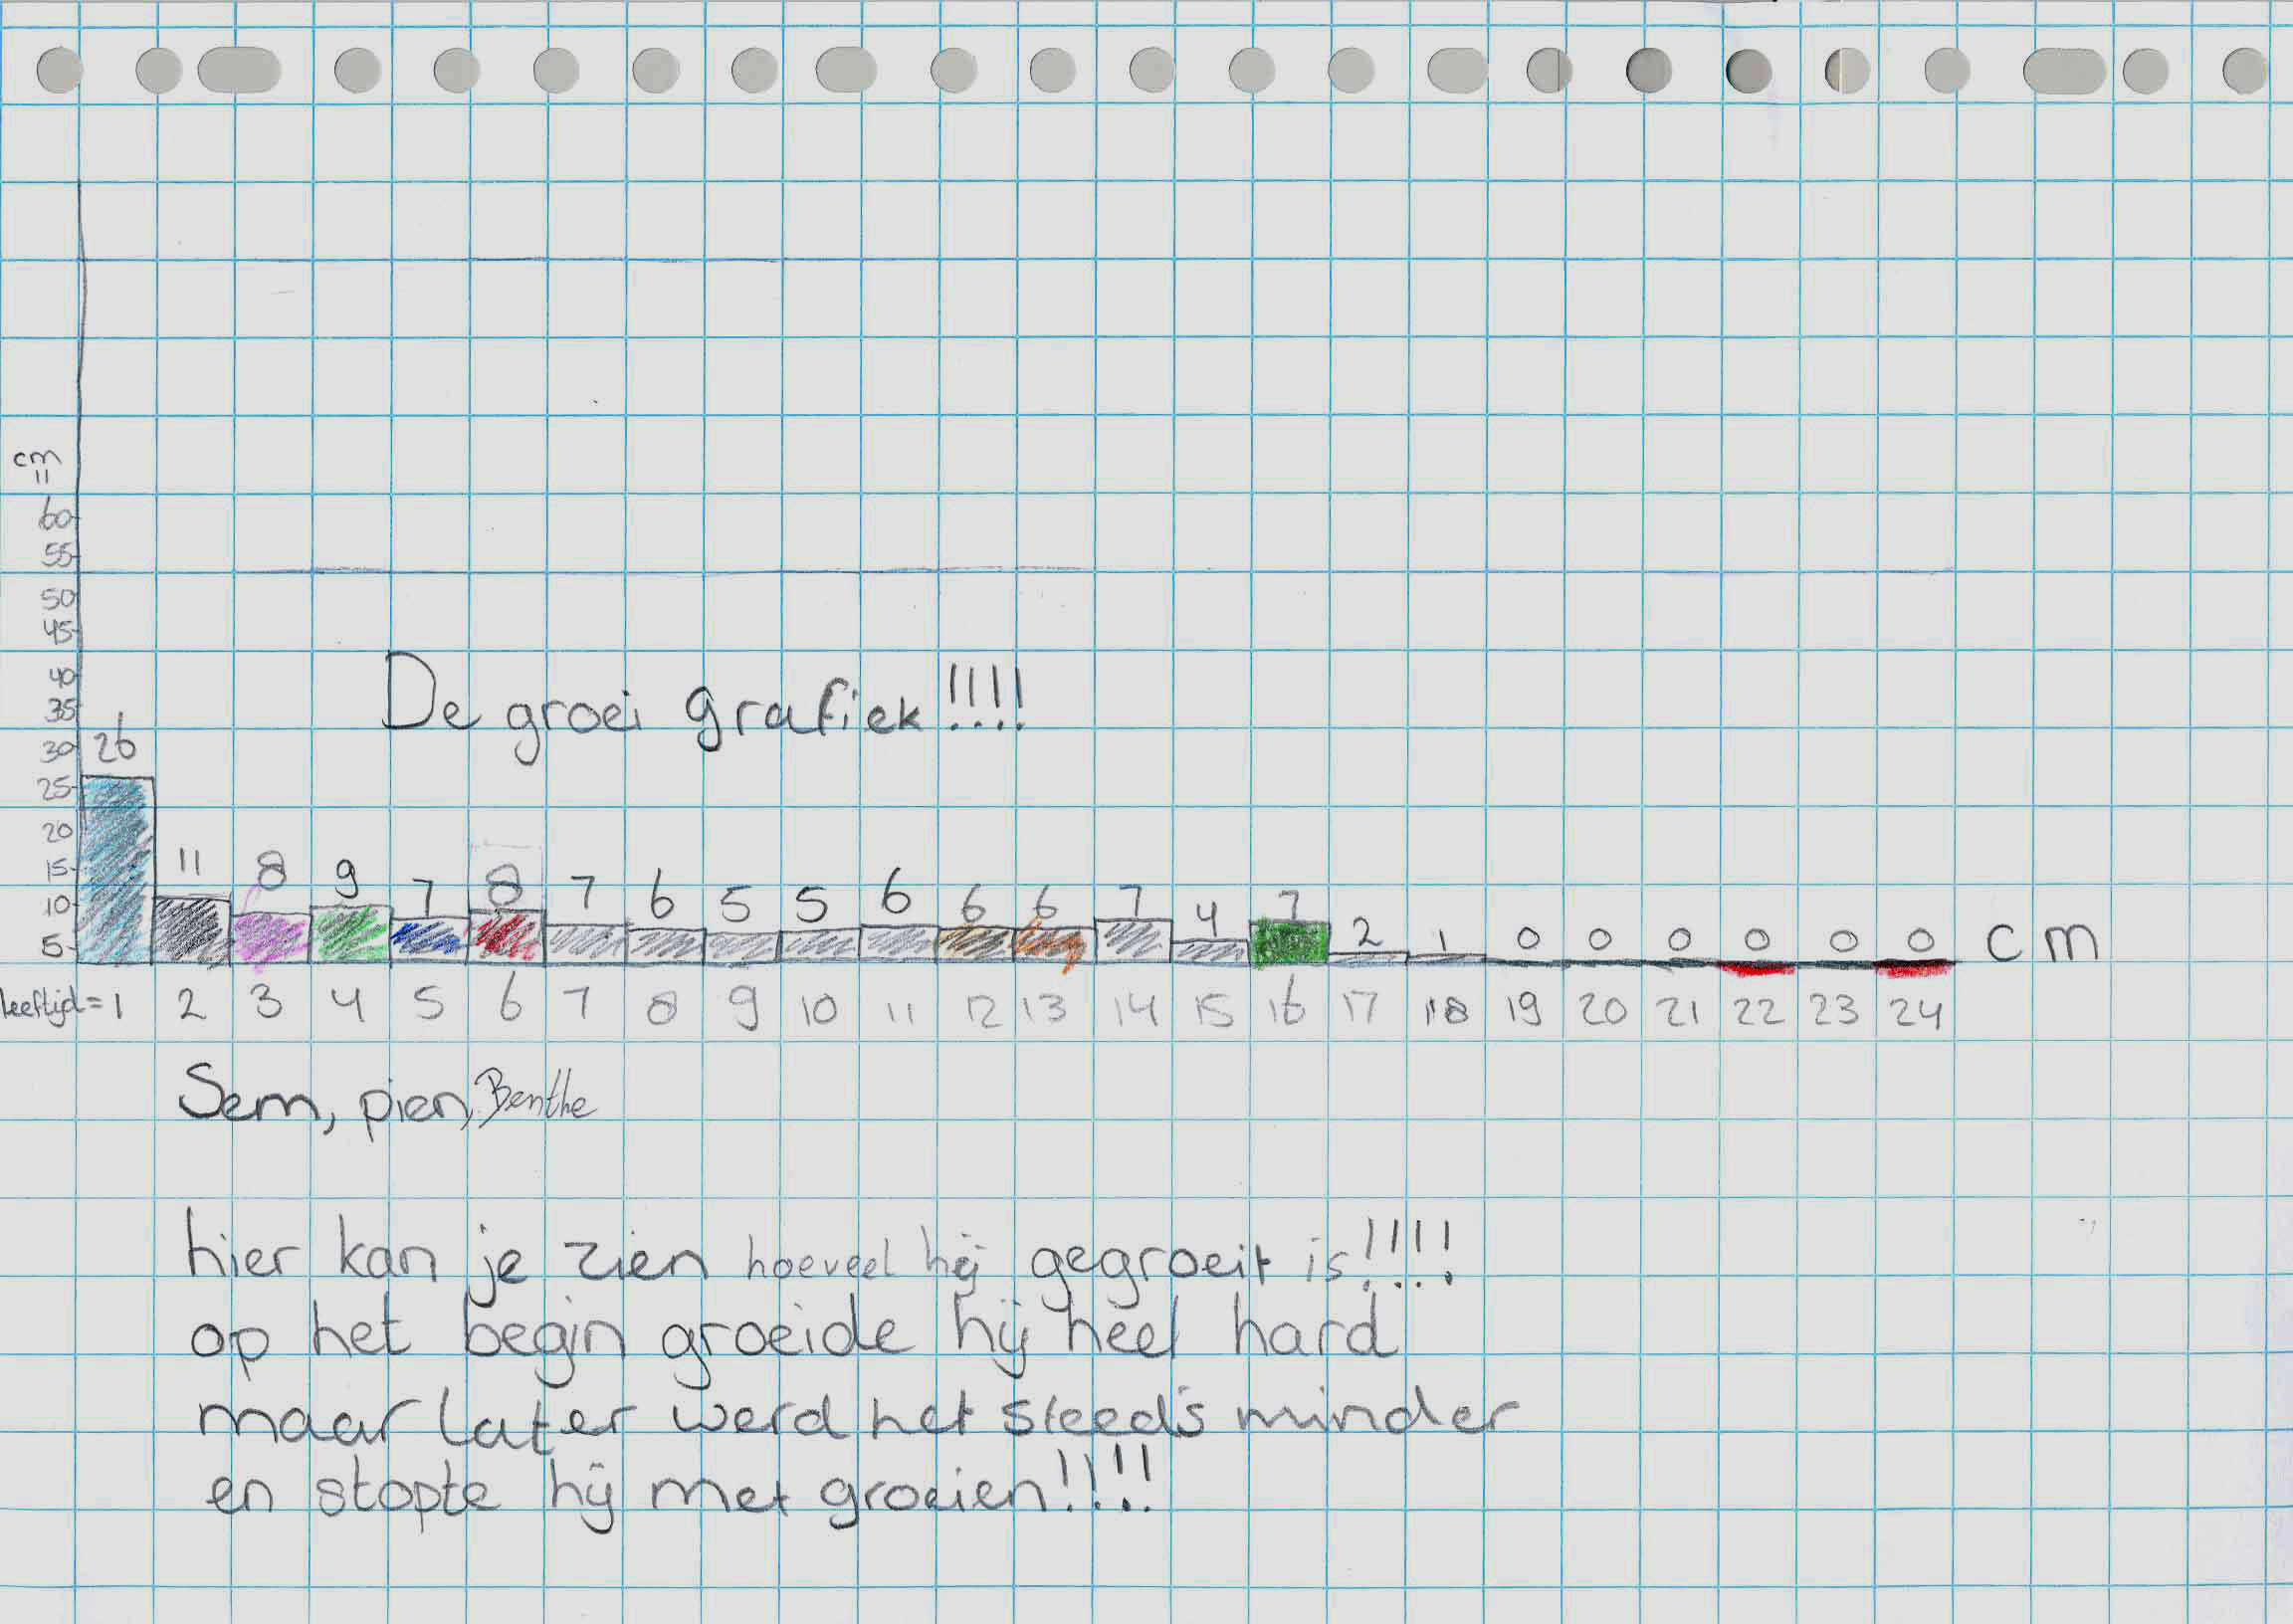 cm
=
60
55
50
45
40
35
30
25
20
15
10
5
De groei grafiek!!!!
26 11 8 9 7 8 7 6 5 5 6 6 6 7 4 7 2 1 0 0 0 0 0 0 cm
leeftijd= 1 2 3 4 5 6 7 8 9 10 11 12 13 14 15 16 17 18 19 20 21 22 23 24
Sem, pien, Benthe
hier kan je zien hoeveel hij gegroeit is!!!!
op het begin groeide hij heel hard
maar later werd het steeds minder
en stopte hij met groeien!!!!